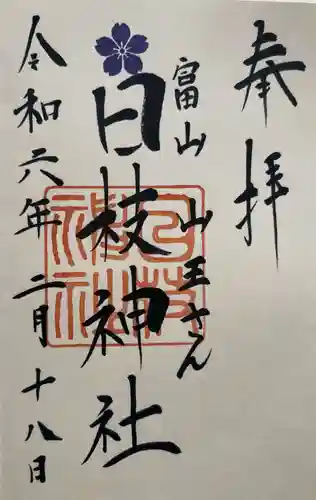 奉拝
富山 山王さん
日枝神社
令和六年二月十八日
日枝神社